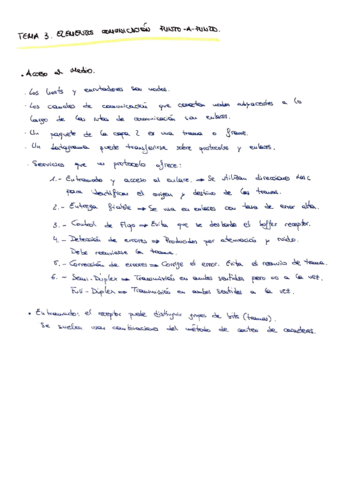 TEMA 3. ELEMENTOS COMUNICACIÓN PUNTO-A-PUNTO.
• Acceso al Medio.
· Los hosts y enrutadores son nodos.
· Los canales de comunicación que conectan nodos adyacentes a lo
largo de las rutas de comunicación son enlaces.
· Un paquete de la capa 2 es una trama o frame.
· Un datagrama puede transferirse sobre protocolos y enlaces.
· Servicios que un protocolo ofrece:
1.- Entramado y acceso al enlace. ⇒ Se utilizan direcciones MAC
para identificar el origen y destino de las tramas.
2.- Entrega fiable ⇒ Se usa en enlaces con tasa de error alta.
3.- Control de Flujo ⇒ Evita que se desborde el buffer receptor.
4.- Detección de errores ⇒ Producidos por atenuación y ruido.
Debe reenviarse la trama.
5.- Corrección de errores ⇒ Corrige el error. Evita el reenvío de trama.
6.- Semi-Dúplex ⇒ Transmisión en ambos sentidos pero no a la vez.
Full-Dúplex ⇒ Transmisión en ambos sentidos a la vez.
• Entramado: el receptor puede distinguir grupos de bits (tramas).
Se suelen usar combinaciones del método de conteo de caracteres.